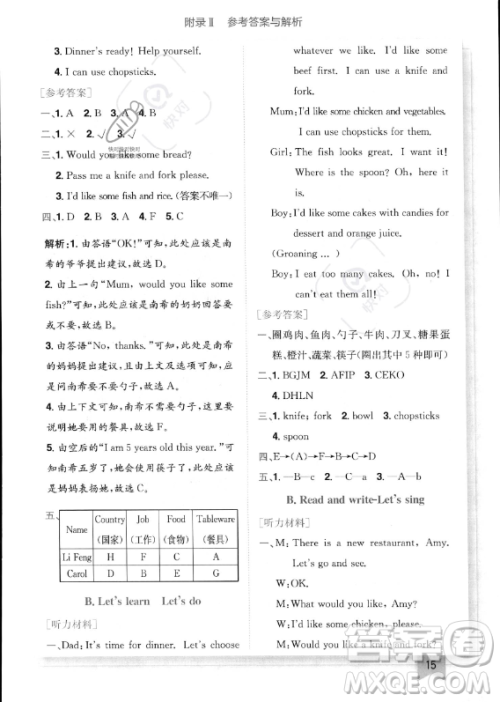 附录Ⅱ 参考答案与解析
3. Dinner's ready! Help yourself.
4. I can use chopsticks.
[参考答案]
一、1. A 2. B 3. A 4. B
二、1. × 2. √ 3. √
三、1. Would you like some bread?
2. Pass me a knife and fork please.
3. I'd like some fish and rice. (答案不唯一)
四、1. D 2. A 3. C 4. B
解析:1. 由答语“OK!”可知,此处应该是南
希的爷爷提出建议,故选 D。
2. 由上一句“Mum, would you like some
fish?”可知,此处应该是南希的奶奶回答要
或不要,故选 A。
3. 由答语“No, thanks.”可知,此处应该是南希
的妈妈提出建议,且由上文及选项可知,
此处应该是要不要勺子,故选 A。
4. 由上下文可知,南希的妈妈应该告诉爷爷
他要使用的餐具,故选 C。
5. 由空后的“I am 5 years old this year.”可知
南希五岁了,她会使用筷子了,此处应该
是妈妈表扬她,故选 B。
五、
Name Country (国家) Job (工作) Food (食物) Tableware (餐具)
Li Feng H F D B
Carol D A E G
B. Let's learn Let's do
[听力材料]
一、Dad: It's time for dinner. Let's choose
whatever we like. I'd like some
beef first. I can use a knife and
fork.
Mum: I'd like some chicken and vegetables.
I can use chopsticks for them.
Girl: The fish looks great. I want it!
Where is the spoon? I can use
it.
Boy: I'd like some cakes with candies for
dessert and orange juice.
(Groaning ...)
Boy: I eat too many cakes. Oh, no! I
can't eat them all!
[参考答案]
一、圈鸡肉、鱼肉、勺子、牛肉、刀叉、糖果蛋
糕、橙汁、蔬菜、筷子(圈出其中 5 种即可)
二、1. BGJM 2. AFIP 3. CEKO
4. DHLN
三、1. knife; fork 2. bowl 3. chopsticks
4. spoon
四、E→(A)→(C)→(B)→(D)→F
五、1. —C—c 2. —B—b 3. —A—a
B. Read and write-Let's sing
[听力材料]
一、M: There is a new restaurant, Amy.
Let's go and see.
W: OK.
M: What would you like, Amy?
W: I'd like some chicken, please.
M: Would you like a knife and fork?
15
快对
答案圈
MXQE.COM